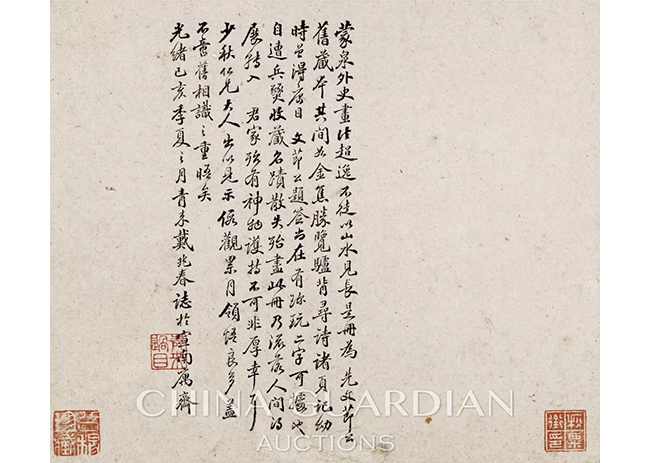 蒙泉外史畫法超逸不徒以山水見長是冊為先文節公
舊藏本其間如金焦勝覽驢背尋詩諸頁記幼
時曾得寓目文節公題簽尚在有珍玩二字可據也
自遭兵燹收藏名蹟散失殆盡此冊乃流落人間得
展轉入君家殆有神物護持不可非厚幸耶
少秋仁兄大人出以見示假觀累月領悟良多蓋
不啻舊相識之重晤矣
光緒己亥季夏之月青來戴兆春誌於宣南寓齋
過目
CHINA GUARDIAN
AUCTIONS